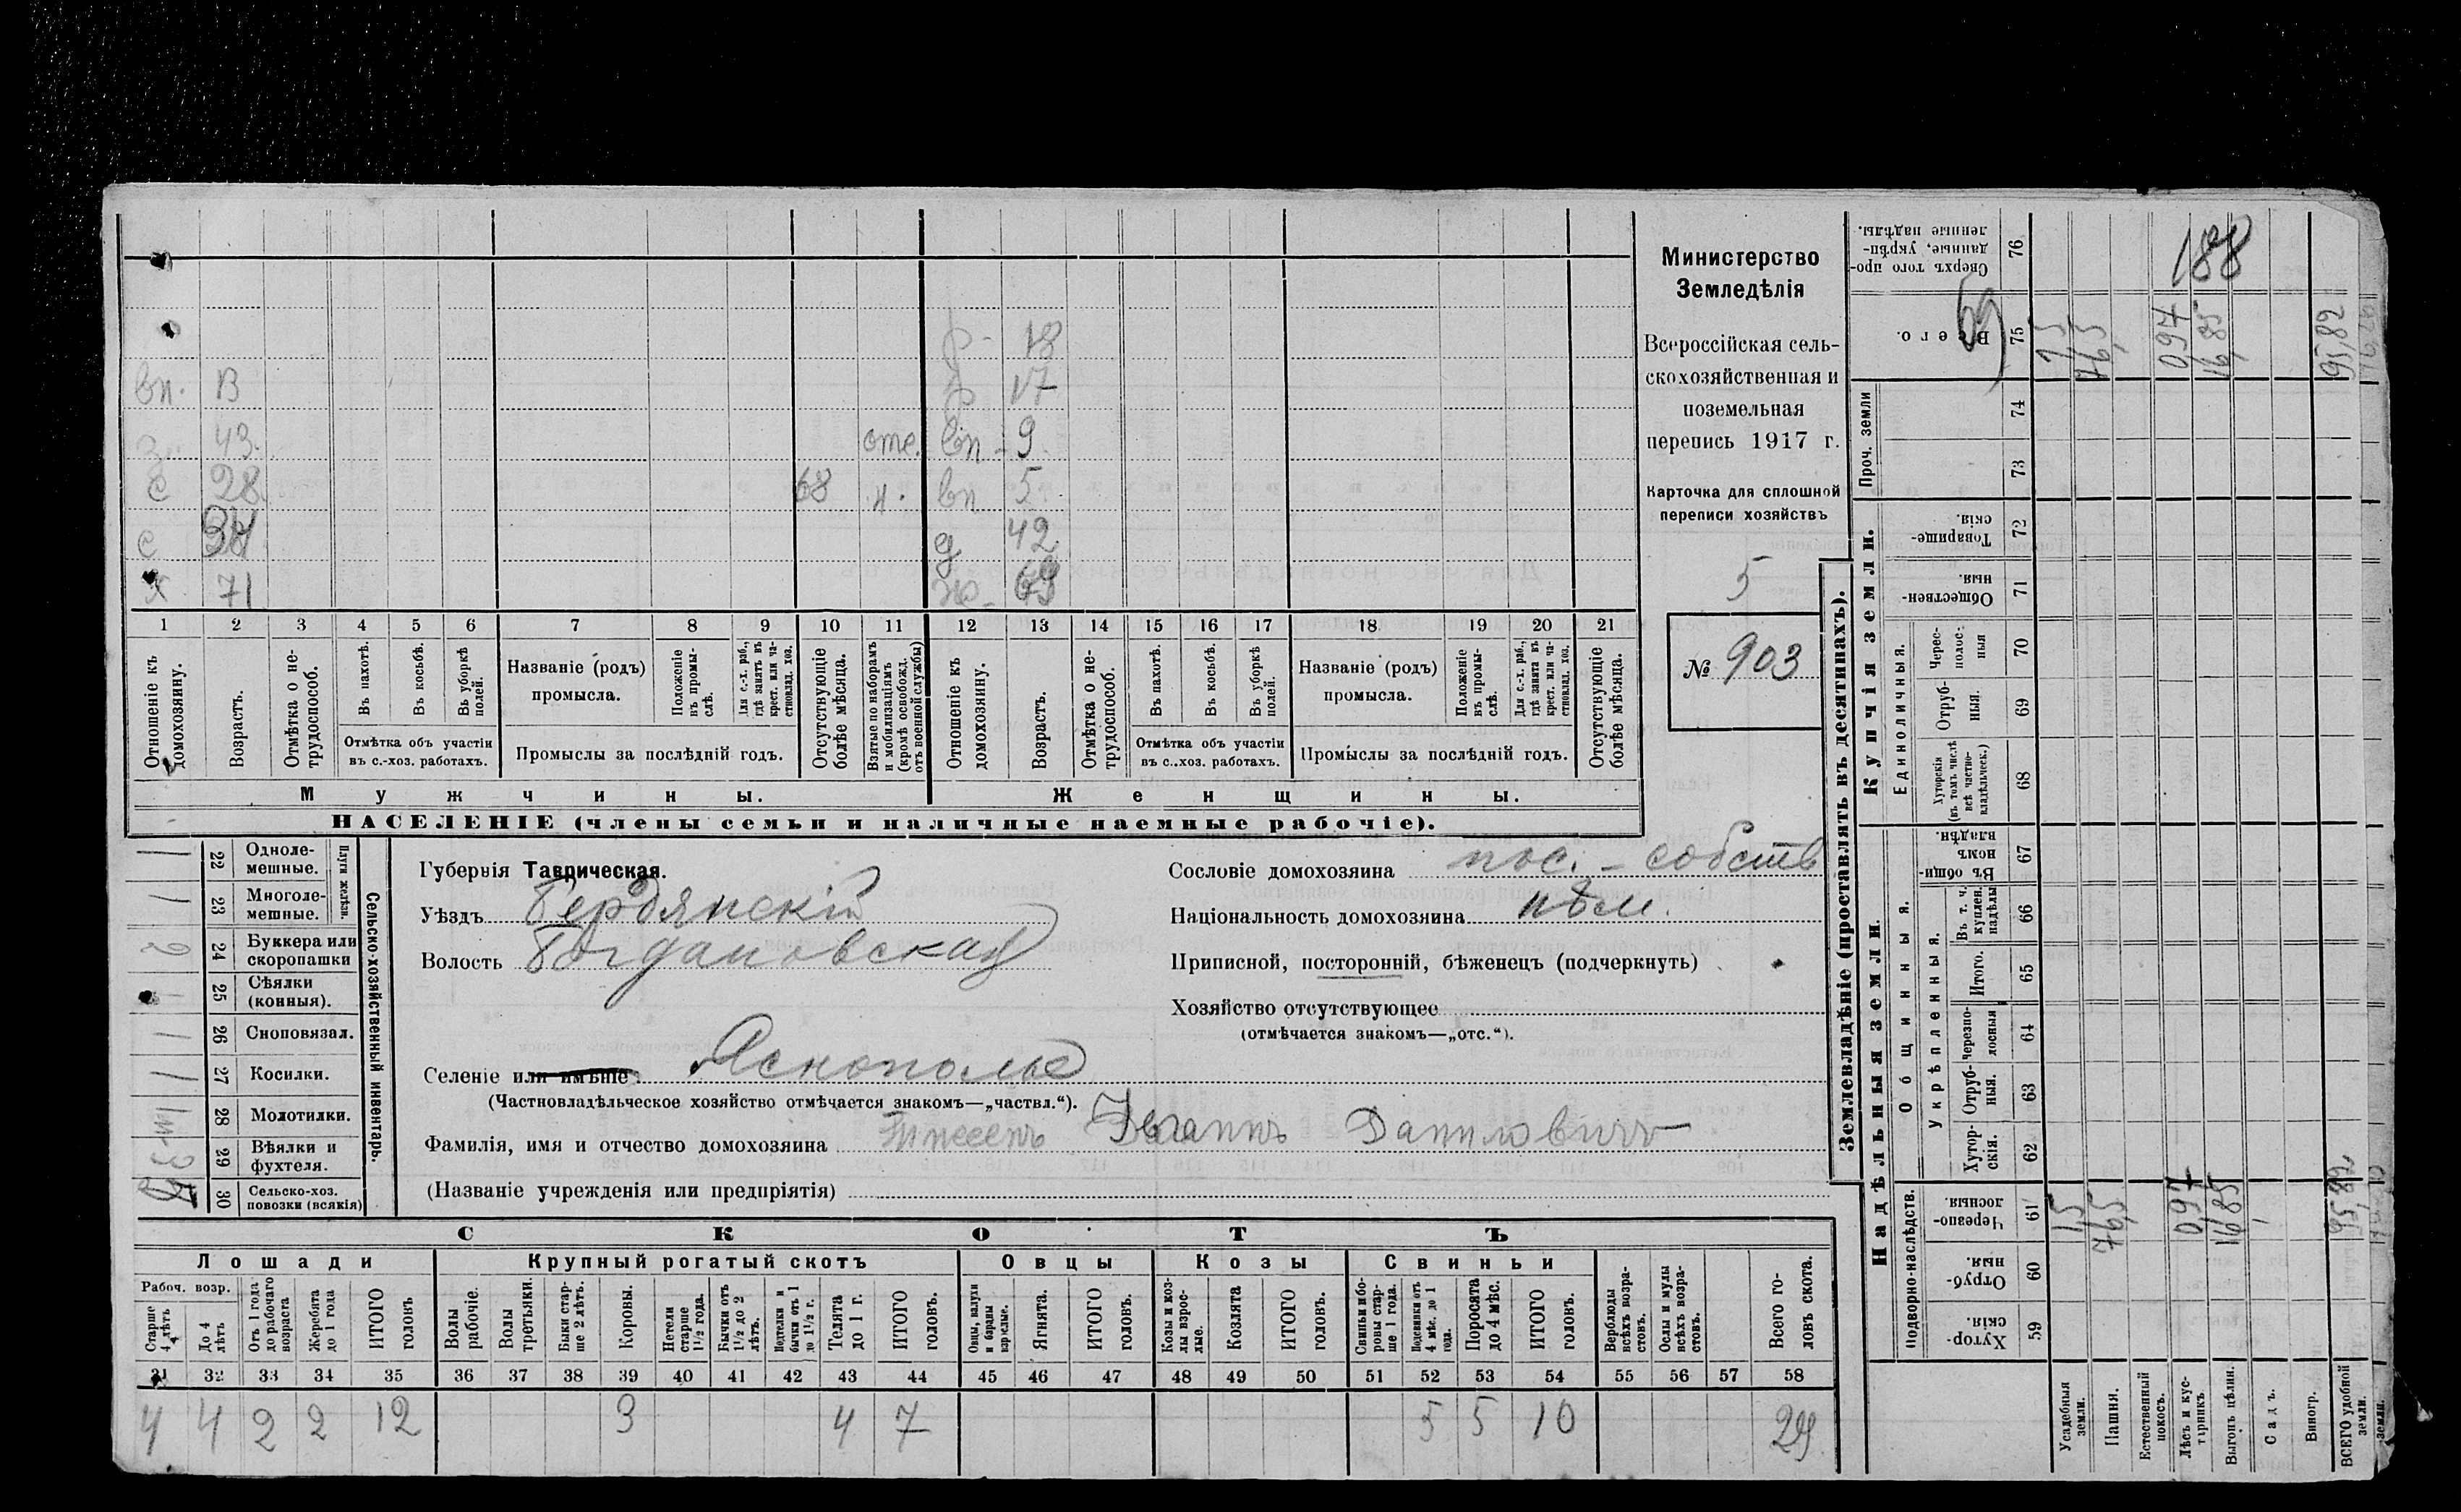 вп. В
43.
с 28.
с
х 71
68
отс.
р - 18
р 17
вп - 9.
вп 5.
д 42
ж - 69
1 2 3 4 5 6 7 8 9 10 11 12 13 14 15 16 17 18 19 20 21
Отношеніе къ домохозяину.
Возрастъ.
Отмѣтка о не-
трудоспособ.
Въ пахотѣ.
Въ косьбѣ.
Въ уборкѣ
полей.
Отмѣтка объ участіи
въ с.-хоз. работахъ.
Названіе (родъ)
промысла.
Положеніе
въ промы-
слѣ.
Для с.-х. раб.,
гдѣ занятъ въ
крест. или ча-
стновлад. хоз.
Промыслы за послѣдній годъ.
Отсутствующіе
болѣе мѣсяца.
Взятые по наборамъ
и мобилизаціямъ
(кромѣ освобожд.
отъ военной службы)
Отношеніе къ
домохозяину.
Возрастъ.
Отмѣтка о не-
трудоспособ.
Въ пахотѣ.
Въ косьбѣ.
Въ уборкѣ
полей.
Отмѣтка объ участіи
въ с..хоз. работахъ.
Названіе (родъ)
промысла.
Положеніе
въ промы-
слѣ.
Для с.-х. раб.,
гдѣ занята въ
крест. или ча-
стновлад. хоз.
Промыслы за послѣдній годъ.
Отсутствующіе
болѣе мѣсяца.
Мужчины.
Женщины.
НАСЕЛЕНІЕ (члены семьи и наличные наемные рабочіе).
Министерство
Земледѣлія
Всероссійская сель-
скохозяйственная и
поземельная
перепись 1917 г.
Карточка для сплошной
переписи хозяйствъ
5
№ 903
Сельско-хозяйственный инвентарь.
Плуги желѣзн.
1 22 Одноле-
мешные.
1 23 Многоле-
мешные.
2 24 Буккера или
скоропашки
1 25 Сѣялки
(конныя).
1 26 Сноповязал.
1 27 Косилки.
28 Молотилки.
29 Вѣялки и
фухтеля.
30 Сельско-хоз.
повозки (всякія)
Губернія Таврическая.
Уѣздъ Бердянскій
Волость Богдановская
Селеніе или имѣніе. Яснополье
(Частновладѣльческое хозяйство отмѣчается знакомъ—„частвл.“).
Фамилія, имя и отчество домохозяина Тиссенъ Іоганнъ Даниловичъ
(Названіе учрежденія или предпріятія)
Сословіе домохозяина пос. - собств
Національность домохозяина нѣм.
Приписной, посторонній, бѣженецъ (подчеркнуть)
Хозяйство отсутствующее
(отмѣчается знакомъ—„отс.“).
СКОТЪ
Лошади
Крупный рогатый скотъ
Овцы
Козы
Свиньи
Рабоч. возр.
Старше
4 лѣтъ
До 4
лѣтъ
Отъ 1 года
до рабочаго
возраста
Жеребята
до 1 года
ИТОГО
головъ
Волы
рабочіе.
Волы
третьяки.
Быки стар-
ше 2 лѣтъ.
Коровы.
Нетели
старше
1½ года.
Бычки отъ
1½ до 2
лѣтъ.
Подтелки и
бычки отъ 1
до 1½ г.
Телята
до 1 г.
ИТОГО
головъ.
Овцы, валухи
и бараны
взрослые.
Ягнята.
ИТОГО
головъ.
Козы и коз-
лы взрос-
лые.
Козлята
ИТОГО
головъ.
Свиньи и бо-
ровы стар-
ше 1 года.
Подсвинки отъ
4 мѣс. до 1
года.
Поросята
до 4 мѣс.
ИТОГО
головъ.
Верблюды
всѣхъ возра-
стовъ.
Ослы и мулы
всѣхъ возра-
стовъ.
Всего го-
ловъ скота.
31 32 33 34 35 36 37 38 39 40 41 42 43 44 45 46 47 48 49 50 51 52 53 54 55 56 57 58
4 4 2 2 12 3 4 7 5 5 10 29
Землевладѣніе (проставлять въ десятинахъ).
Надѣльныя земли.
Купчія земли.
Проч. земли
Подворно-наслѣдств.
Общинныя.
Укрѣпленныя.
Единоличныя.
Хутор-
скія. 59
Отруб-
ныя. 60
Черезпо-
лосныя. 61
Хутор-
скія. 62
Отруб-
ныя. 63
Черезпо-
лосныя 64
Итого. 65
Въ т. ч.
куплен.
надѣлы 66
Въ общин-
номъ
владѣн. 67
Хуторскія
(въ томъ числѣ
всѣ частно-
владѣльческ.) 68
Отруб-
ныя. 69
Черес-
полос-
ныя 70
Обществен-
ныя. 71
Товарище-
скія. 72
73
74
Всего. 75
Сверхъ того про-
данные, укрѣп-
ленные надѣлы. 76
69
188
Усадебныя
земли. 1,5 1,5
Пашня. 76,5 76,5
Естественный
покосъ.
Лѣсъ и кус-
тарникъ 0,97 0,97
Выгонъ цѣлин. 16,85 16,85
Садъ.
Виногр.
ВСЕГО удобной
земли. 95,82 95,82
земли.